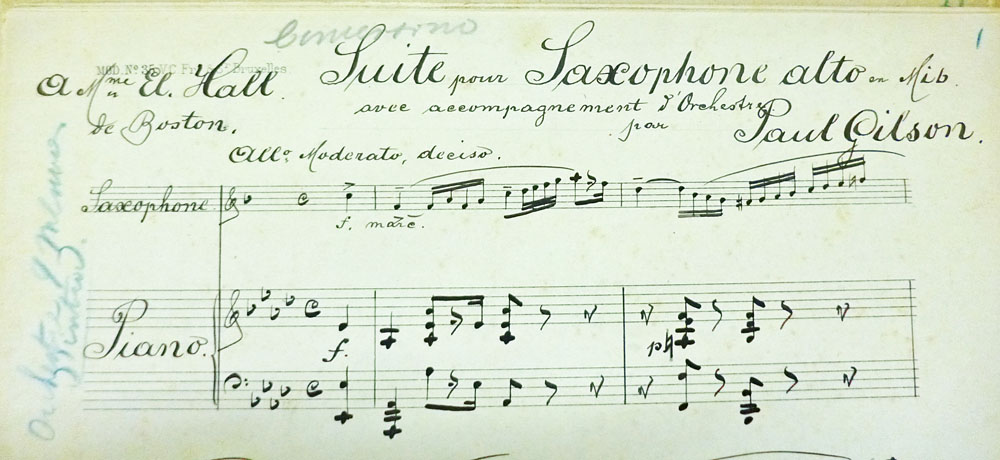 Concertino
MOD. Nº 35
Bruxelles
1
A Mme El. Hall.
Suite pour Saxophone alto en Mib.
de Boston.
avec accompagnement d'Orchestre
par
Paul Gilson.
Allo. Moderato, deciso.
Saxophone
f. marc.
Piano.
f.
p